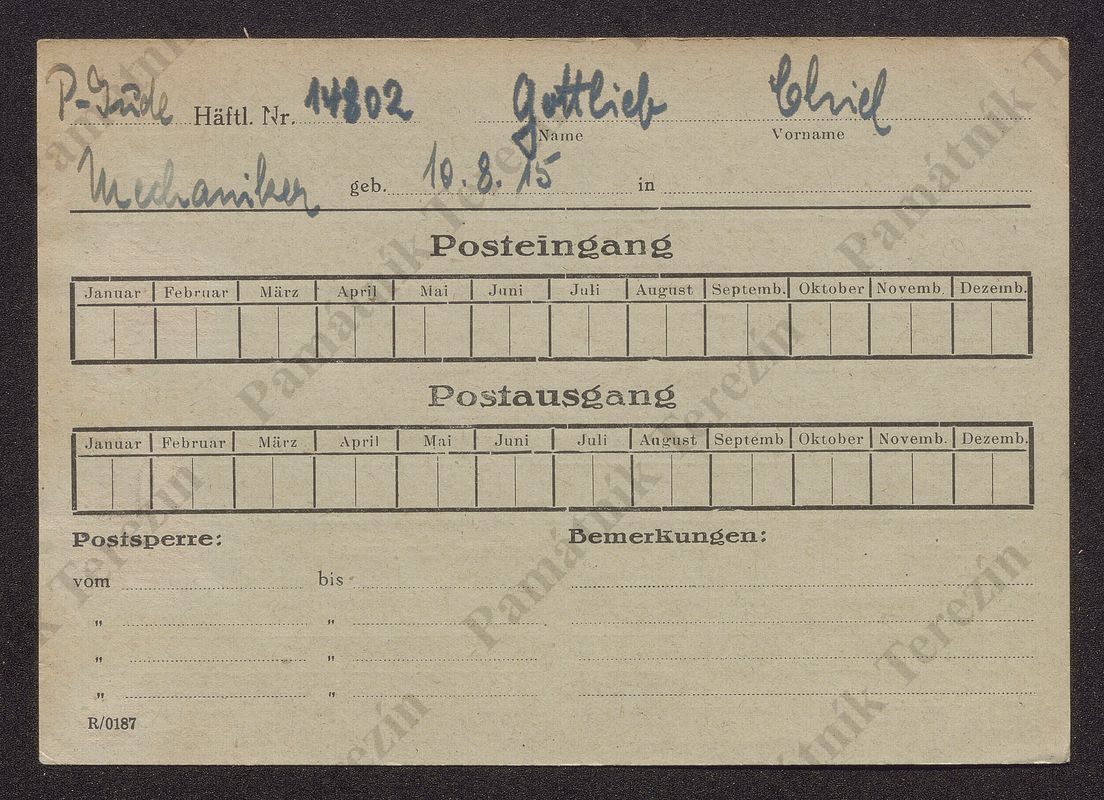 P-Jude Häftl. Nr. 14802 Gottlieb Chiel
Name Vorname
Mechaniker geb. 10.8.15 in
Posteingang
Januar Februar März April Mai Juni Juli August Septemb. Oktober Novemb. Dezemb.
Postausgang
Januar Februar März April Mai Juni Juli August Septemb Oktober Novemb. Dezemb.
Postsperre: Bemerkungen:
vom bis
" "
" "
" "
R/0187
Památník Terezín